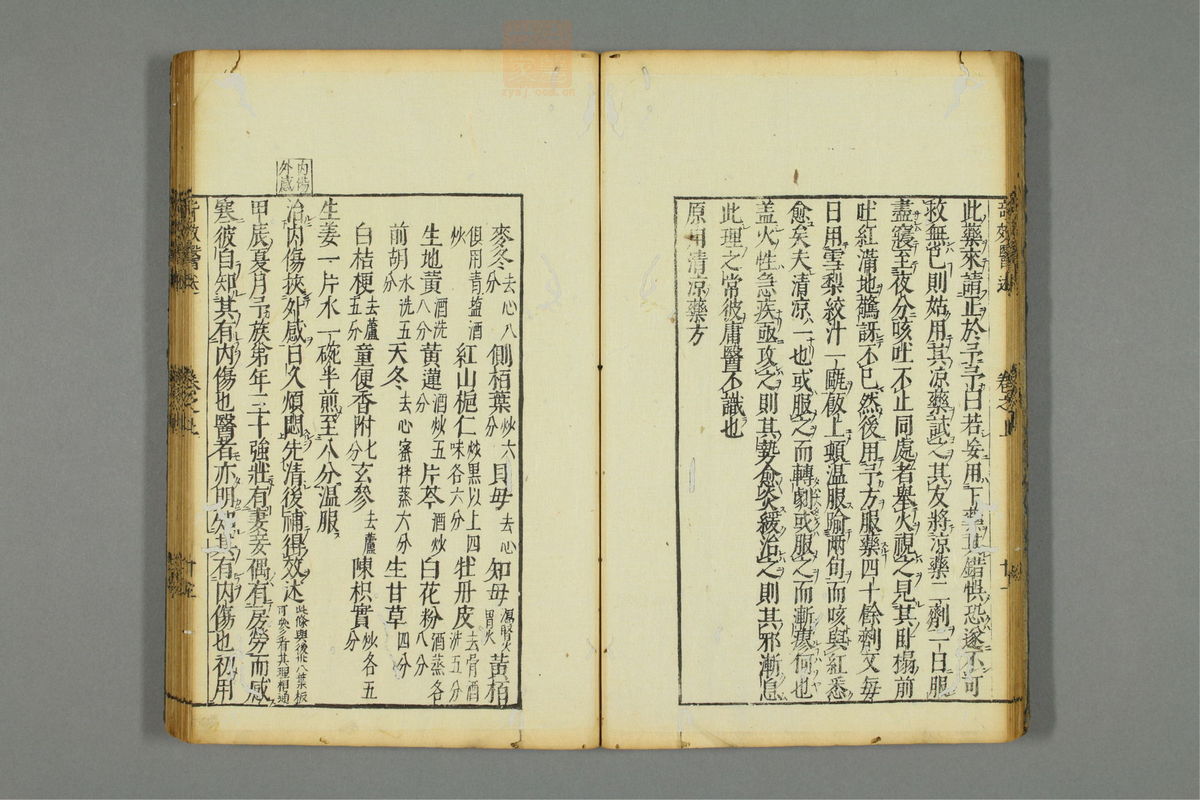 此藥來請正於予予曰若妄用下藥其錯惧恐遂不可
救無已則姑用其凉藥試之其友將凉藥一劑一日服
盡寢至夜分咳吐不止同處者舉火視之見其町榻前
吐紅滿地驚訝不已然後用予方服藥四十餘劑又每
日用雪梨絞汁一甌飯上頓温服踰兩旬而咳與紅悉
愈矣夫清凉一也或服之而轉劇或服之而漸瘳何也
盖火性急疾亟攻之則其勢愈炎緩治之則其邪漸息
此理之常彼庸醫不識也
原用清凉藥方
麥冬去心八分 側栢葉炒六分 貝母去心 知母瀉腎火胃火 黄栢
俱用青塩酒炒 紅山梔仁炒黒以上四味各六分 牡丹皮去骨酒洗五分
生地黄酒洗八分 黄蓮酒炒五分 片芩酒炒 白花粉酒蒸各八分
前胡水洗五分 天冬去心蜜拌蒸六分 生甘草四分
白桔梗去蘆五分 童便香附七分 玄參去蘆 陳枳實炒各五分
生姜一片水一碗半煎至八分温服
内傷外感
治内傷挾外感日久煩悶先清後補得效述此條與後卅八葉板可參看其理相通
甲辰夏月予族弟年三十強壯有妻妾偶有房勞而感
寒彼自知其有内傷也醫者亦明知其有内傷也初用